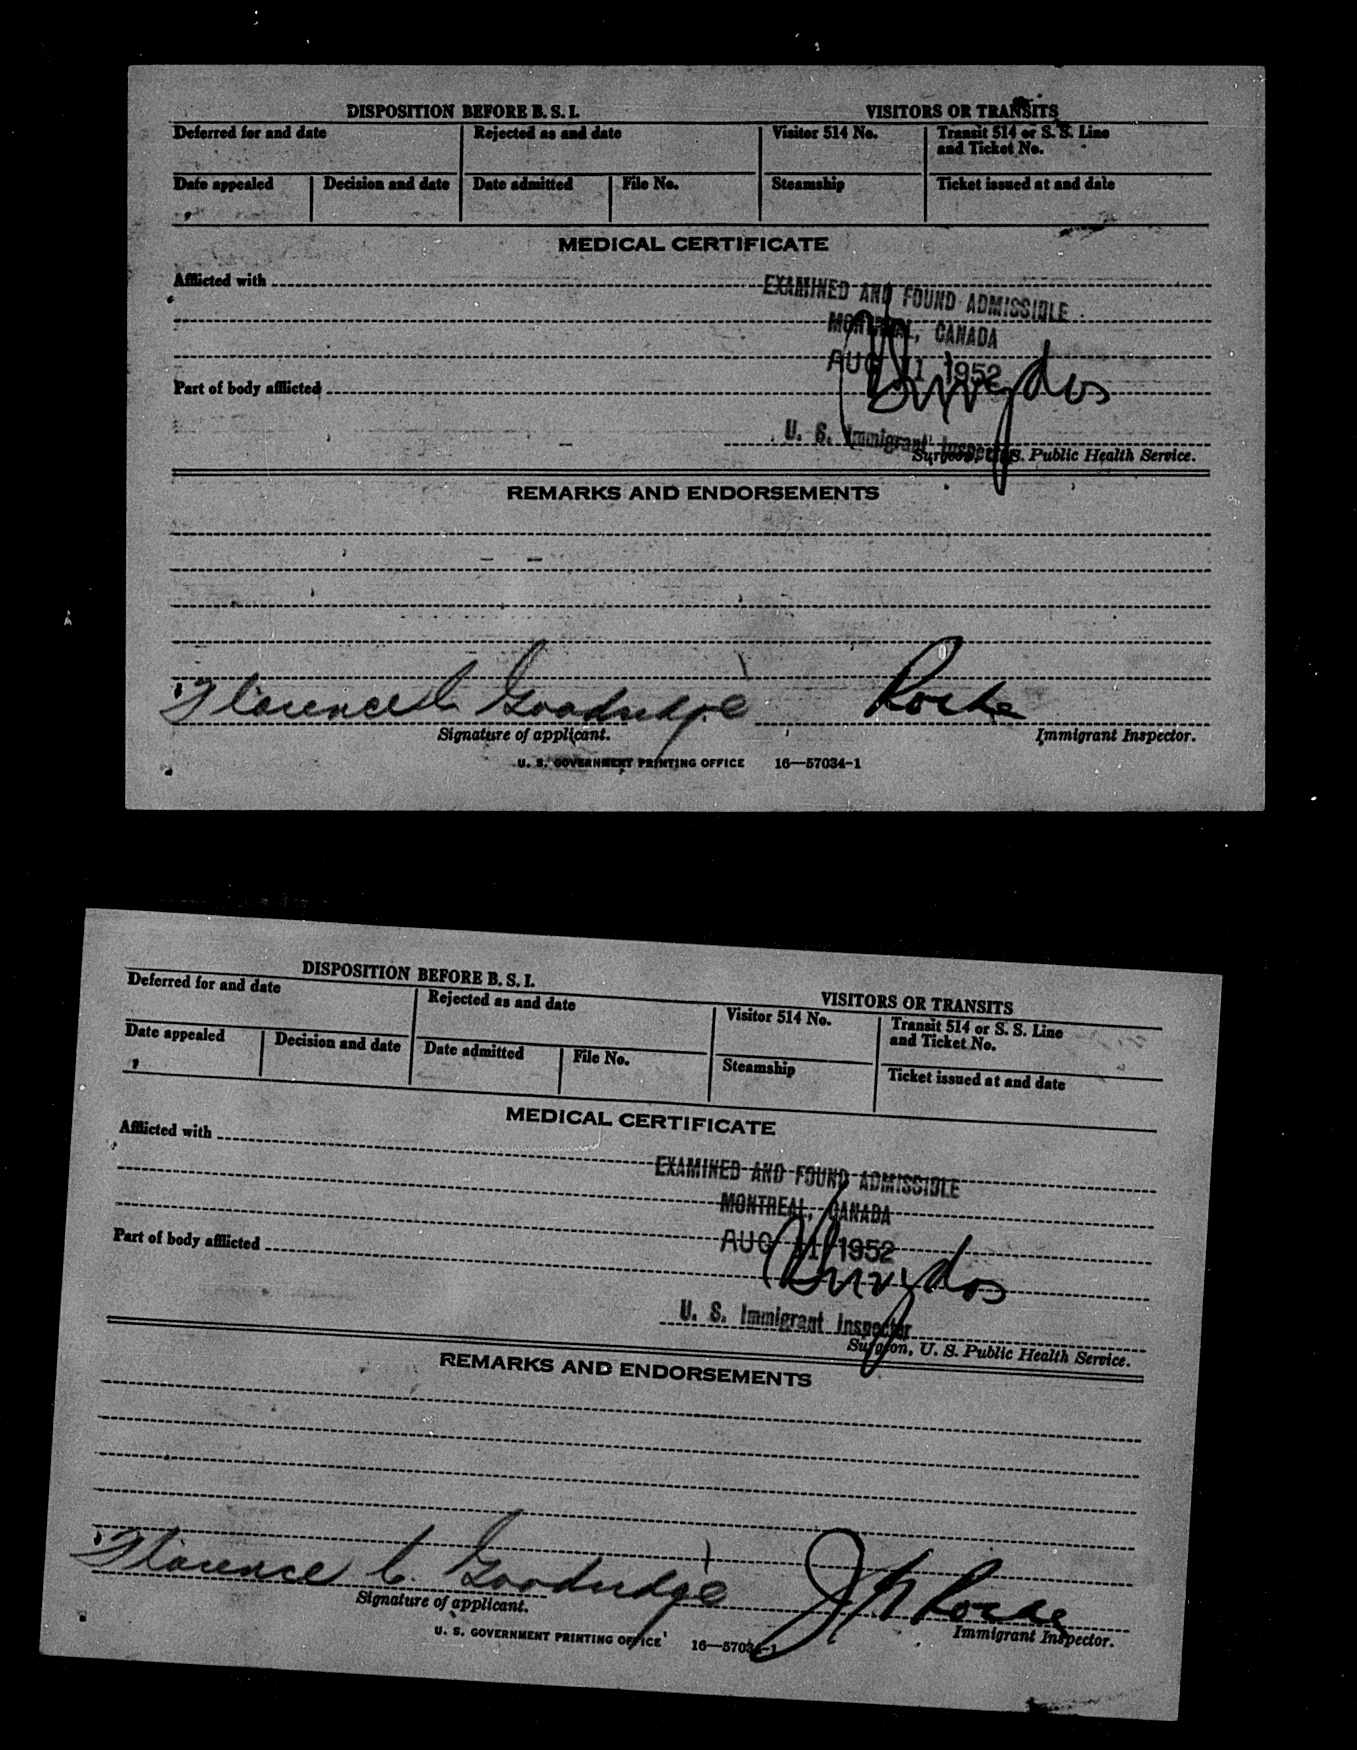 DISPOSITION BEFORE B. S. I. VISITORS OR TRANSITS
Deferred for and date Rejected as and date Visitor 514 No. Transit 514 or S. S. Line
and Ticket No.
Date appealed Decision and date Date admitted File No. Steamship Ticket issued at and date
MEDICAL CERTIFICATE
Afflicted with
EXAMINED AND FOUND ADMISSIBLE
MONTREAL, CANADA
AUG 11 1952
Part of body afflicted
U. S. Immigrant Inspector
Surgeon, U. S. Public Health Service.
REMARKS AND ENDORSEMENTS
Florence C. Goodridge Roche
Signature of applicant. Immigrant Inspector.
U. S. GOVERNMENT PRINTING OFFICE 16—57034-1
DISPOSITION BEFORE B. S. I. VISITORS OR TRANSITS
Deferred for and date Rejected as and date Visitor 514 No. Transit 514 or S. S. Line
and Ticket No.
Date appealed Decision and date Date admitted File No. Steamship Ticket issued at and date
MEDICAL CERTIFICATE
Afflicted with
EXAMINED AND FOUND ADMISSIBLE
MONTREAL, CANADA
AUG 11 1952
Part of body afflicted
U. S. Immigrant Inspector
Surgeon, U. S. Public Health Service.
REMARKS AND ENDORSEMENTS
Florence C. Goodridge Roche
Signature of applicant. Immigrant Inspector.
U. S. GOVERNMENT PRINTING OFFICE 16—57034-1